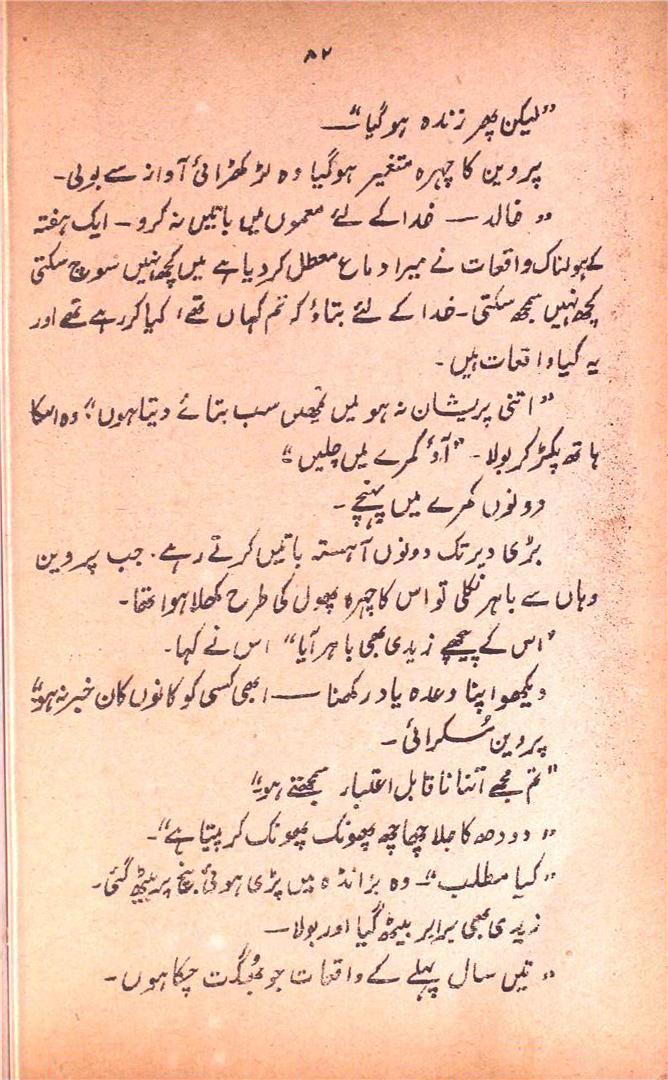 ۸۲
"لیکن پھر زندہ ہو گیا"—
پروین کا چہرہ متغیر ہوگیا وہ لڑکھڑائی آواز سے بولی۔
"خالد — خدا کے لئے معموں میں باتیں نہ کرو — ایک ہفتہ
کے ہولناک واقعات نے میرا دماغ معطل کر دیا ہے میں کچھ نہیں سوچ سکتی
کچھ نہیں سمجھ سکتی۔ خدا کے لئے بتاؤ کہ تم کہاں تھے، کیا کر رہے تھے اور
یہ کیا واقعات ہیں۔
"اتنی پریشان نہ ہو میں تمھیں سب بتائے دیتا ہوں"، وہ اسکا
ہاتھ پکڑ کر بولا۔ "آؤ کمرے میں چلیں"
دونوں کمرے میں پہنچے۔
بڑی دیر تک دونوں آہستہ باتیں کرتے رہے۔ جب پروین
وہاں سے باہر نکلی تو اس کا چہرہ پھول کی طرح کھلا ہوا تھا۔
"اس کے پیچھے زیدی بھی باہر آیا" اس نے کہا۔
دیکھو اپنا وعدہ یاد رکھنا — ابھی کسی کو کانوں کان خبر نہ ہو"
پروین مُسکرائی۔
"تم مجھے اتنا نا قابل اعتبار سمجھتے ہو"
"دودھ کا جلا چھاچھ پھونک پھونک کر پیتا ہے"۔
"کیا مطلب"۔ وہ برانڈہ میں پڑی ہوئی بنچ پر بیٹھ گئی۔
زیدی بھی برابر بیٹھ گیا اور بولا—
"تین سال پہلے کے واقعات جو بھُگت چکا ہوں۔